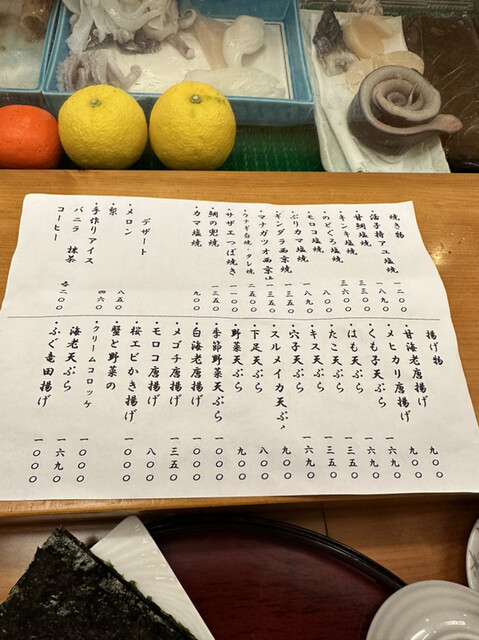 焼き物
・活子持アユ塩焼 一二〇〇
・甘鯛塩焼
・キンキ塩焼 三六〇〇
・のどぐろ塩焼
・モロコ塩焼
・ぶりカマ塩焼
・ギンダラ西京焼 一三五〇
・マナガツオ西京焼 一三五〇
・ウナギ白焼・タレ焼 二五〇〇
・サザエつぼ焼き
・鯛の兜焼
・カマ塩焼 九〇〇
デザート
・メロン
・梨 八五〇
・手作りアイス 四六〇
バニラ 抹茶
コーヒー 各二〇〇
揚げ物
・甘海老唐揚げ 九〇〇
・メヒカリ唐揚げ 九〇〇
・くも子天ぷら 一六九〇
・はも天ぷら 一六九〇
・たこ天ぷら 一三五〇
・キス天ぷら 一三五〇
・穴子天ぷら 一六九〇
・スルメイカ天ぷら 九〇〇
・下足天ぷら 八〇〇
野菜天ぷら 九〇〇
・季節野菜天ぷら 一〇〇〇
・白海老唐揚げ 一〇〇〇
・メゴチ唐揚げ 一三五〇
・モロコ唐揚げ 八〇〇
・桜エビかき揚げ 一〇〇〇
・蟹と野菜の
・クリームコロッケ 一〇〇〇
海老天ぷら 一六九〇
・ふぐ竜田揚げ 一〇〇〇